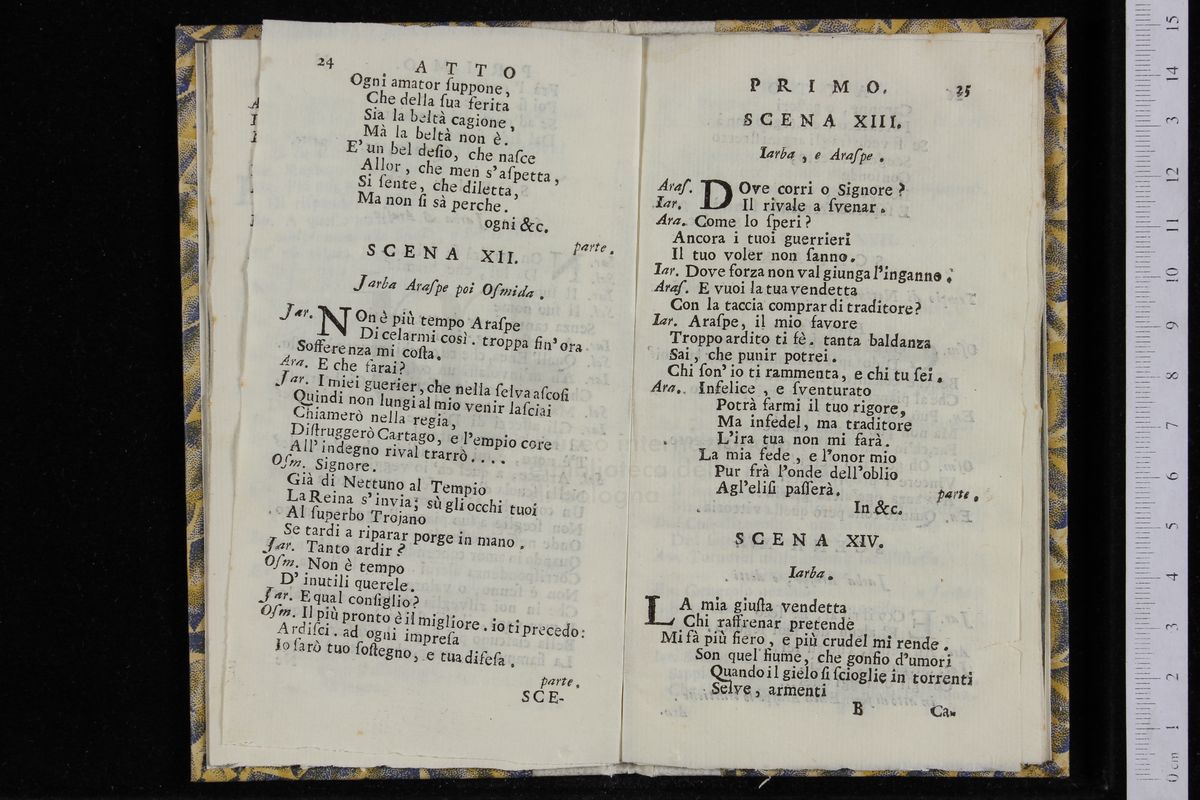 24 A T T O
Ogni amator ſuppone,
Che della ſua ferita
Sia la beltà cagione,
Mà la beltà non è.
E' un bel deſio, che naſce
Allor, che men s'aſpetta,
Si ſente, che diletta,
Ma non ſi sà perche.
ogni &c.
parte.
SCENA XII.
Jarba Araſpe poi Oſmida.
Jar. NOn è più tempo Araſpe
Di celarmi così. troppa fin'ora
Sofferenza mi coſta.
Ara. E che farai?
Jar. I miei guerier, che nella ſelva aſcoſi
Quindi non lungi al mio venir laſciai
Chiamerò nella regia,
Diſtruggerò Cartago, e l'empio core
All' indegno rival trarrò....
Oſm. Signore.
Già di Nettuno al Tempio
La Reina s'invia; sù gli occhi tuoi
Al ſuperbo Trojano
Se tardi a riparar porge in mano.
Jar. Tanto ardir?
Oſm. Non è tempo
D' inutili querele.
Jar. E qual conſiglio?
Oſm. Il più pronto è il migliore. io ti precedo:
Ardiſci. ad ogni impreſa
Io ſarò tuo ſoſtegno, e tua difeſa.
parte.
SCE-
P R I M O. 25
SCENA XIII.
Iarba, e Araſpe.
Araſ. DOve corri o Signore?
Iar. Il rivale a ſvenar.
Ara. Come lo ſperi?
Ancora i tuoi guerrieri
Il tuo voler non ſanno.
Iar. Dove forza non val giunga l'inganno.
Araſ. E vuoi la tua vendetta
Con la taccia comprar di traditore?
Iar. Araſpe, il mio favore
Troppo ardito ti fè. tanta baldanza
Sai, che punir potrei.
Chi ſon' io ti rammenta, e chi tu ſei.
Ara. Infelice, e ſventurato
Potrà farmi il tuo rigore,
Ma infedel, ma traditore
L'ira tua non mi farà.
La mia fede, e l'onor mio
Pur frà l'onde dell'oblio
Agl'eliſi paſſerà.
parte.
In &c.
SCENA XIV.
Iarba.
LA mia giuſta vendetta
Chi raffrenar pretende
Mi fà più fiero, e più crudel mi rende.
Son quel fiume, che gonfio d'umori
Quando il gielo ſi ſcioglie in torrenti
Selve, armenti
B Ca-